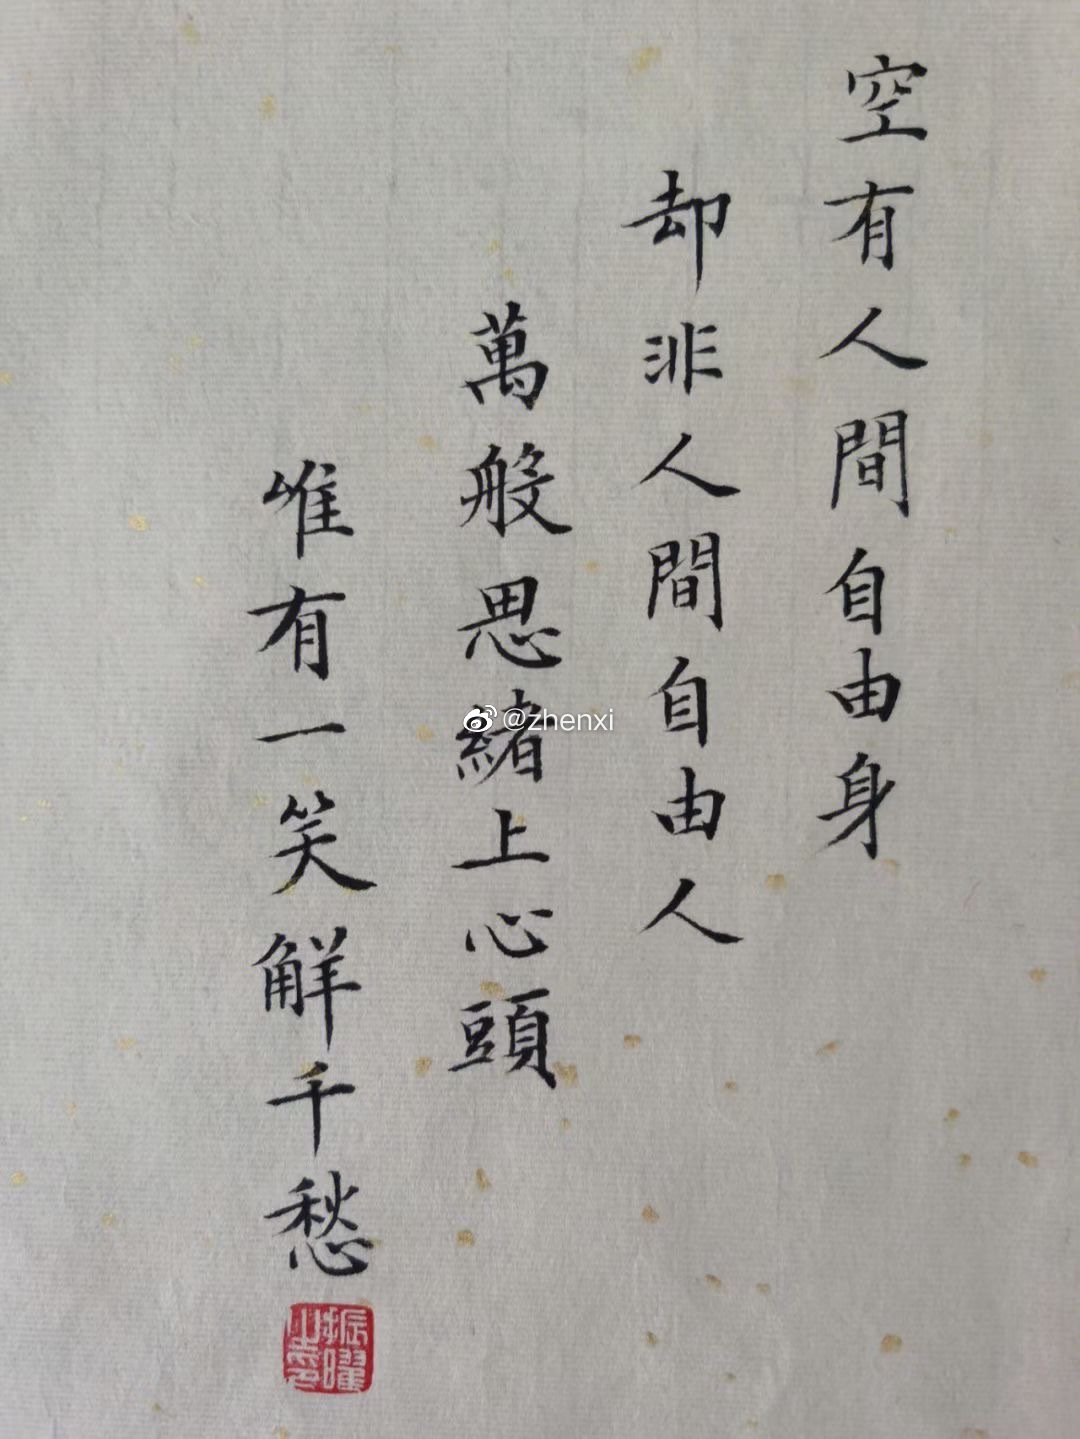 空有人間自由身
却非人間自由人
萬般思緒上心頭
唯有一笑解千愁
振曜
@zhenxi